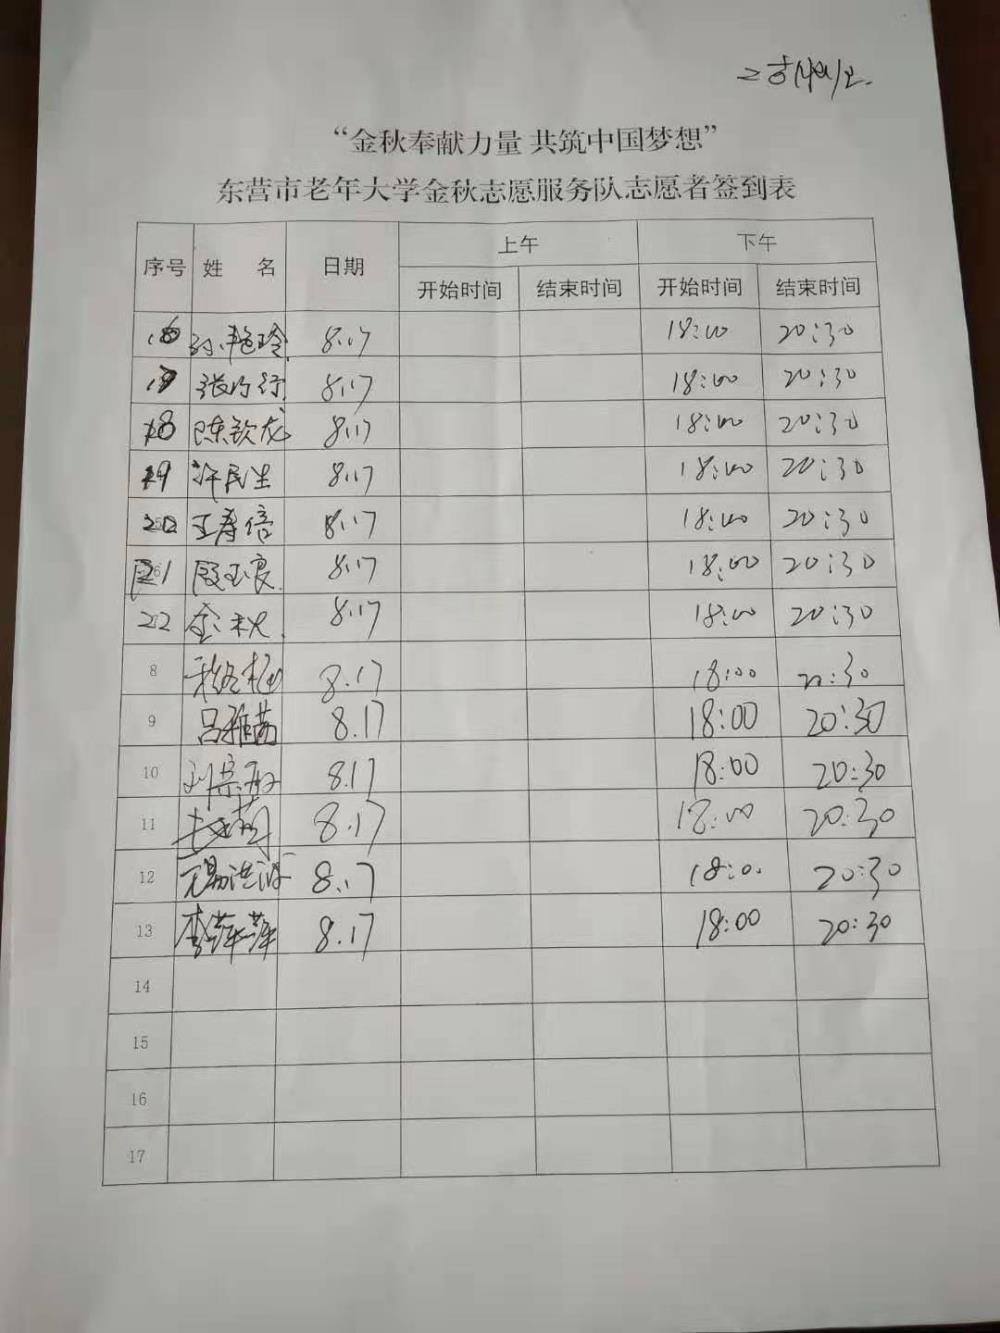 “金秋奉献力量 共筑中国梦想”
东营市老年大学金秋志愿服务队志愿者签到表
序号 姓 名 日期 上午 下午
开始时间 结束时间 开始时间 结束时间
8.17 18:00 20:30
8.17 18:00 20:30
18 陈钦龙 8.17 18:00 20:30
19 许民生 8.17 18:00 20:30
20 王寿倍 8.17 18:00 20:30
21 段玉良 8.17 18:00 20:30
22 金秋 8.17 18:00 20:30
8 8.17 18:00 20:30
9 吕雅茜 8.17 18:00 20:30
10 8.17 18:00 20:30
11 8.17 18:00 20:30
12 8.17 20:30
13 李萍萍 8.17 18:00 20:30
14
15
16
17